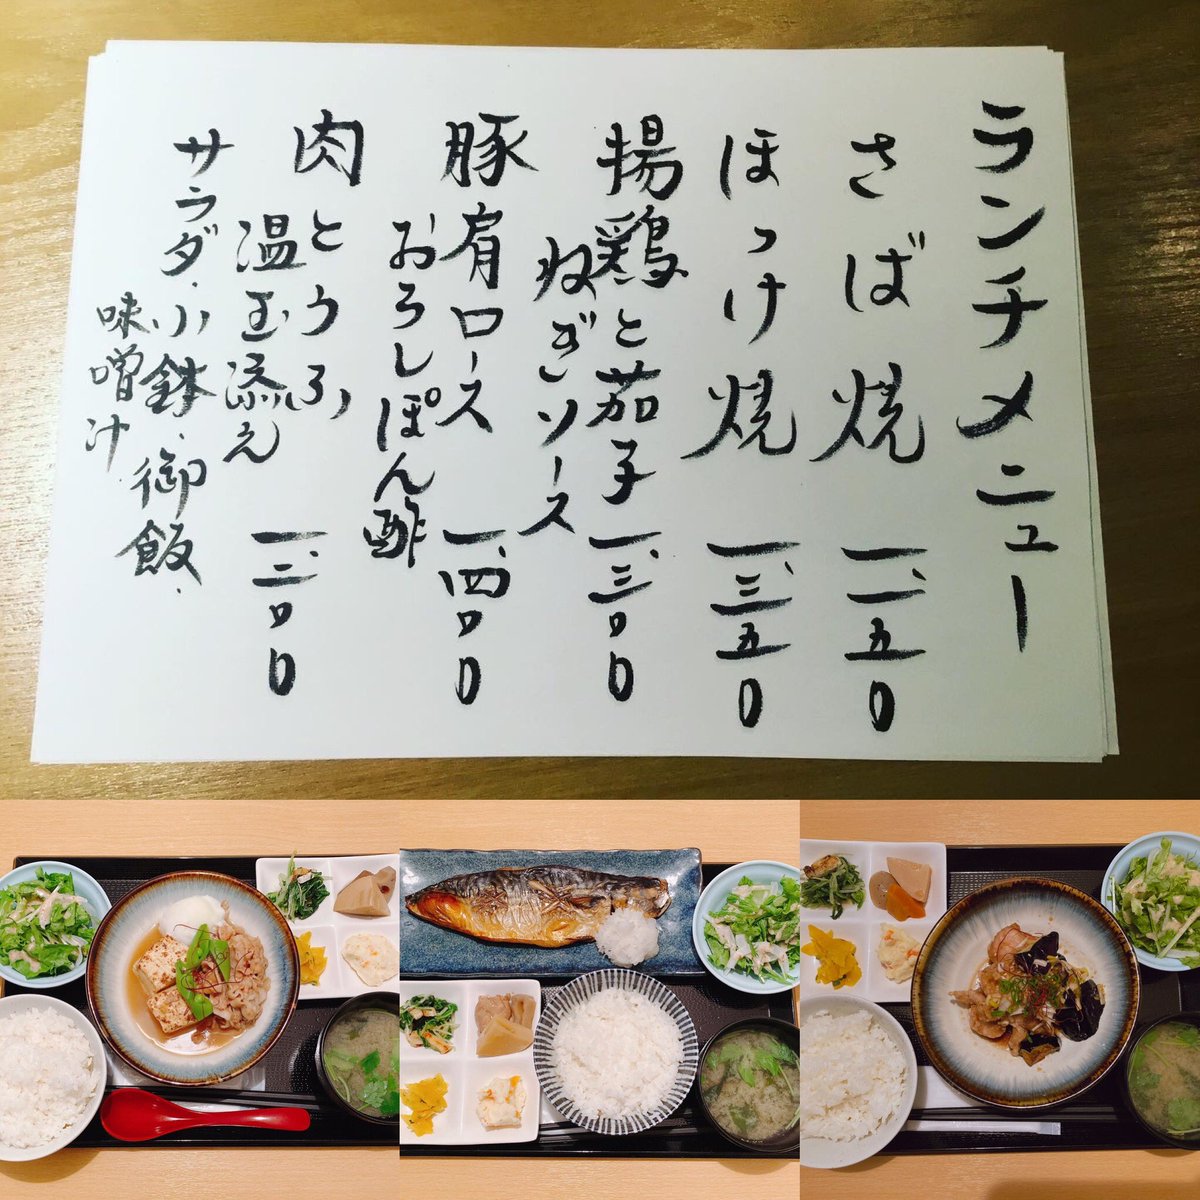 ランチメニュー
さば焼 一、一五〇
ほっけ焼 一、三五〇
揚鶏と茄子
ねぎソース 一、三〇〇
豚肩ロース
おろしぽん酢 一、四〇〇
肉とうふ
温玉添え 一、二〇〇
サラダ・小鉢・御飯・
味噌汁